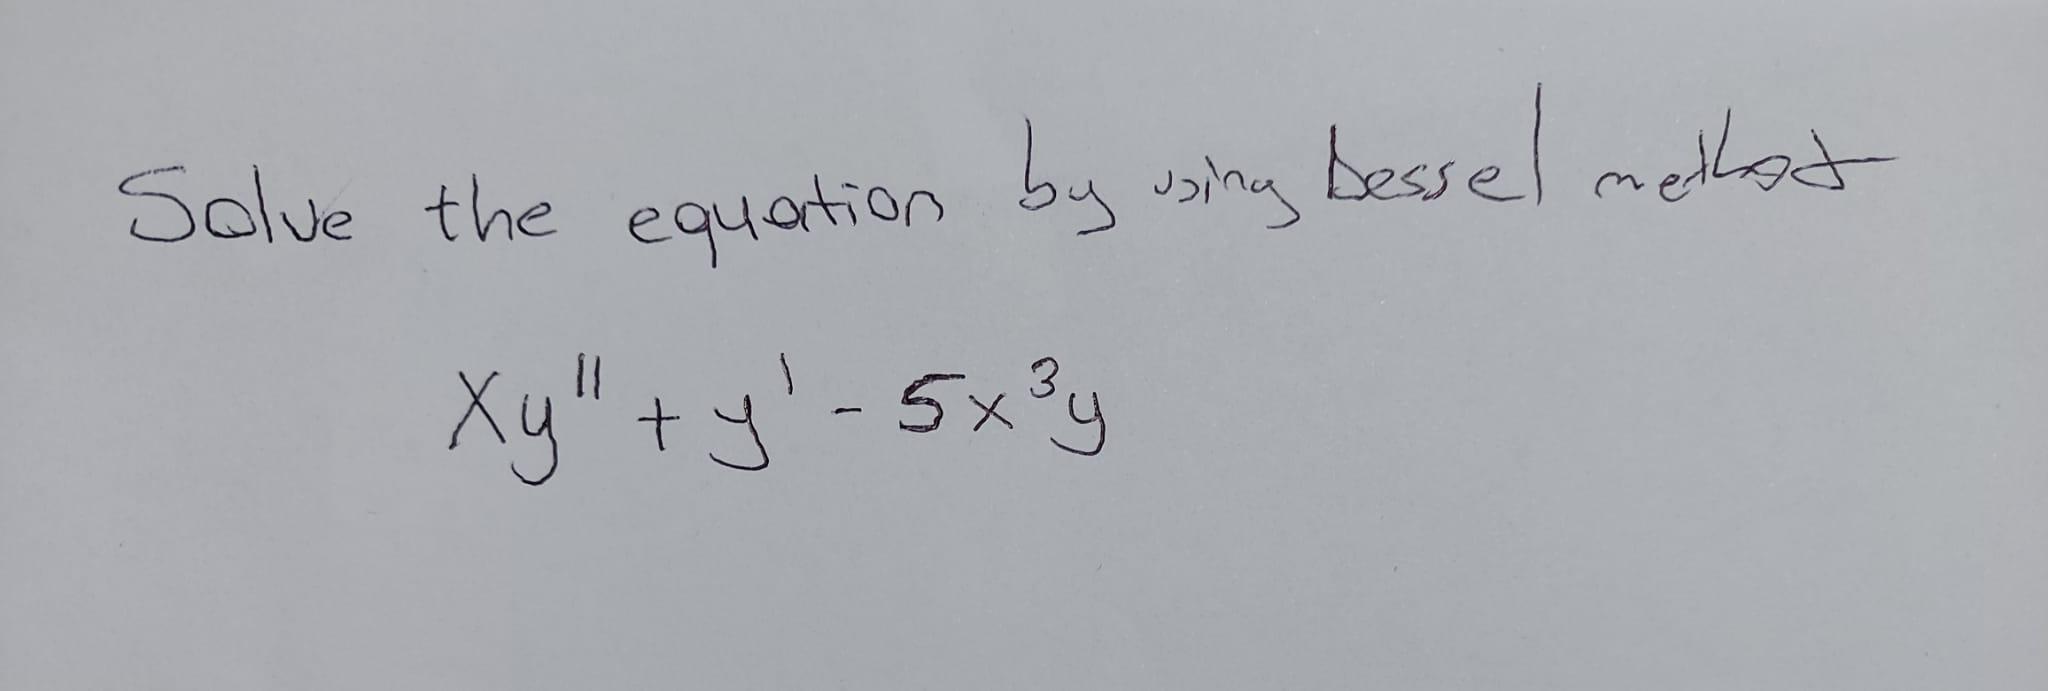 Solve the equation by using bessel method
Xy" + y' - 5x³y